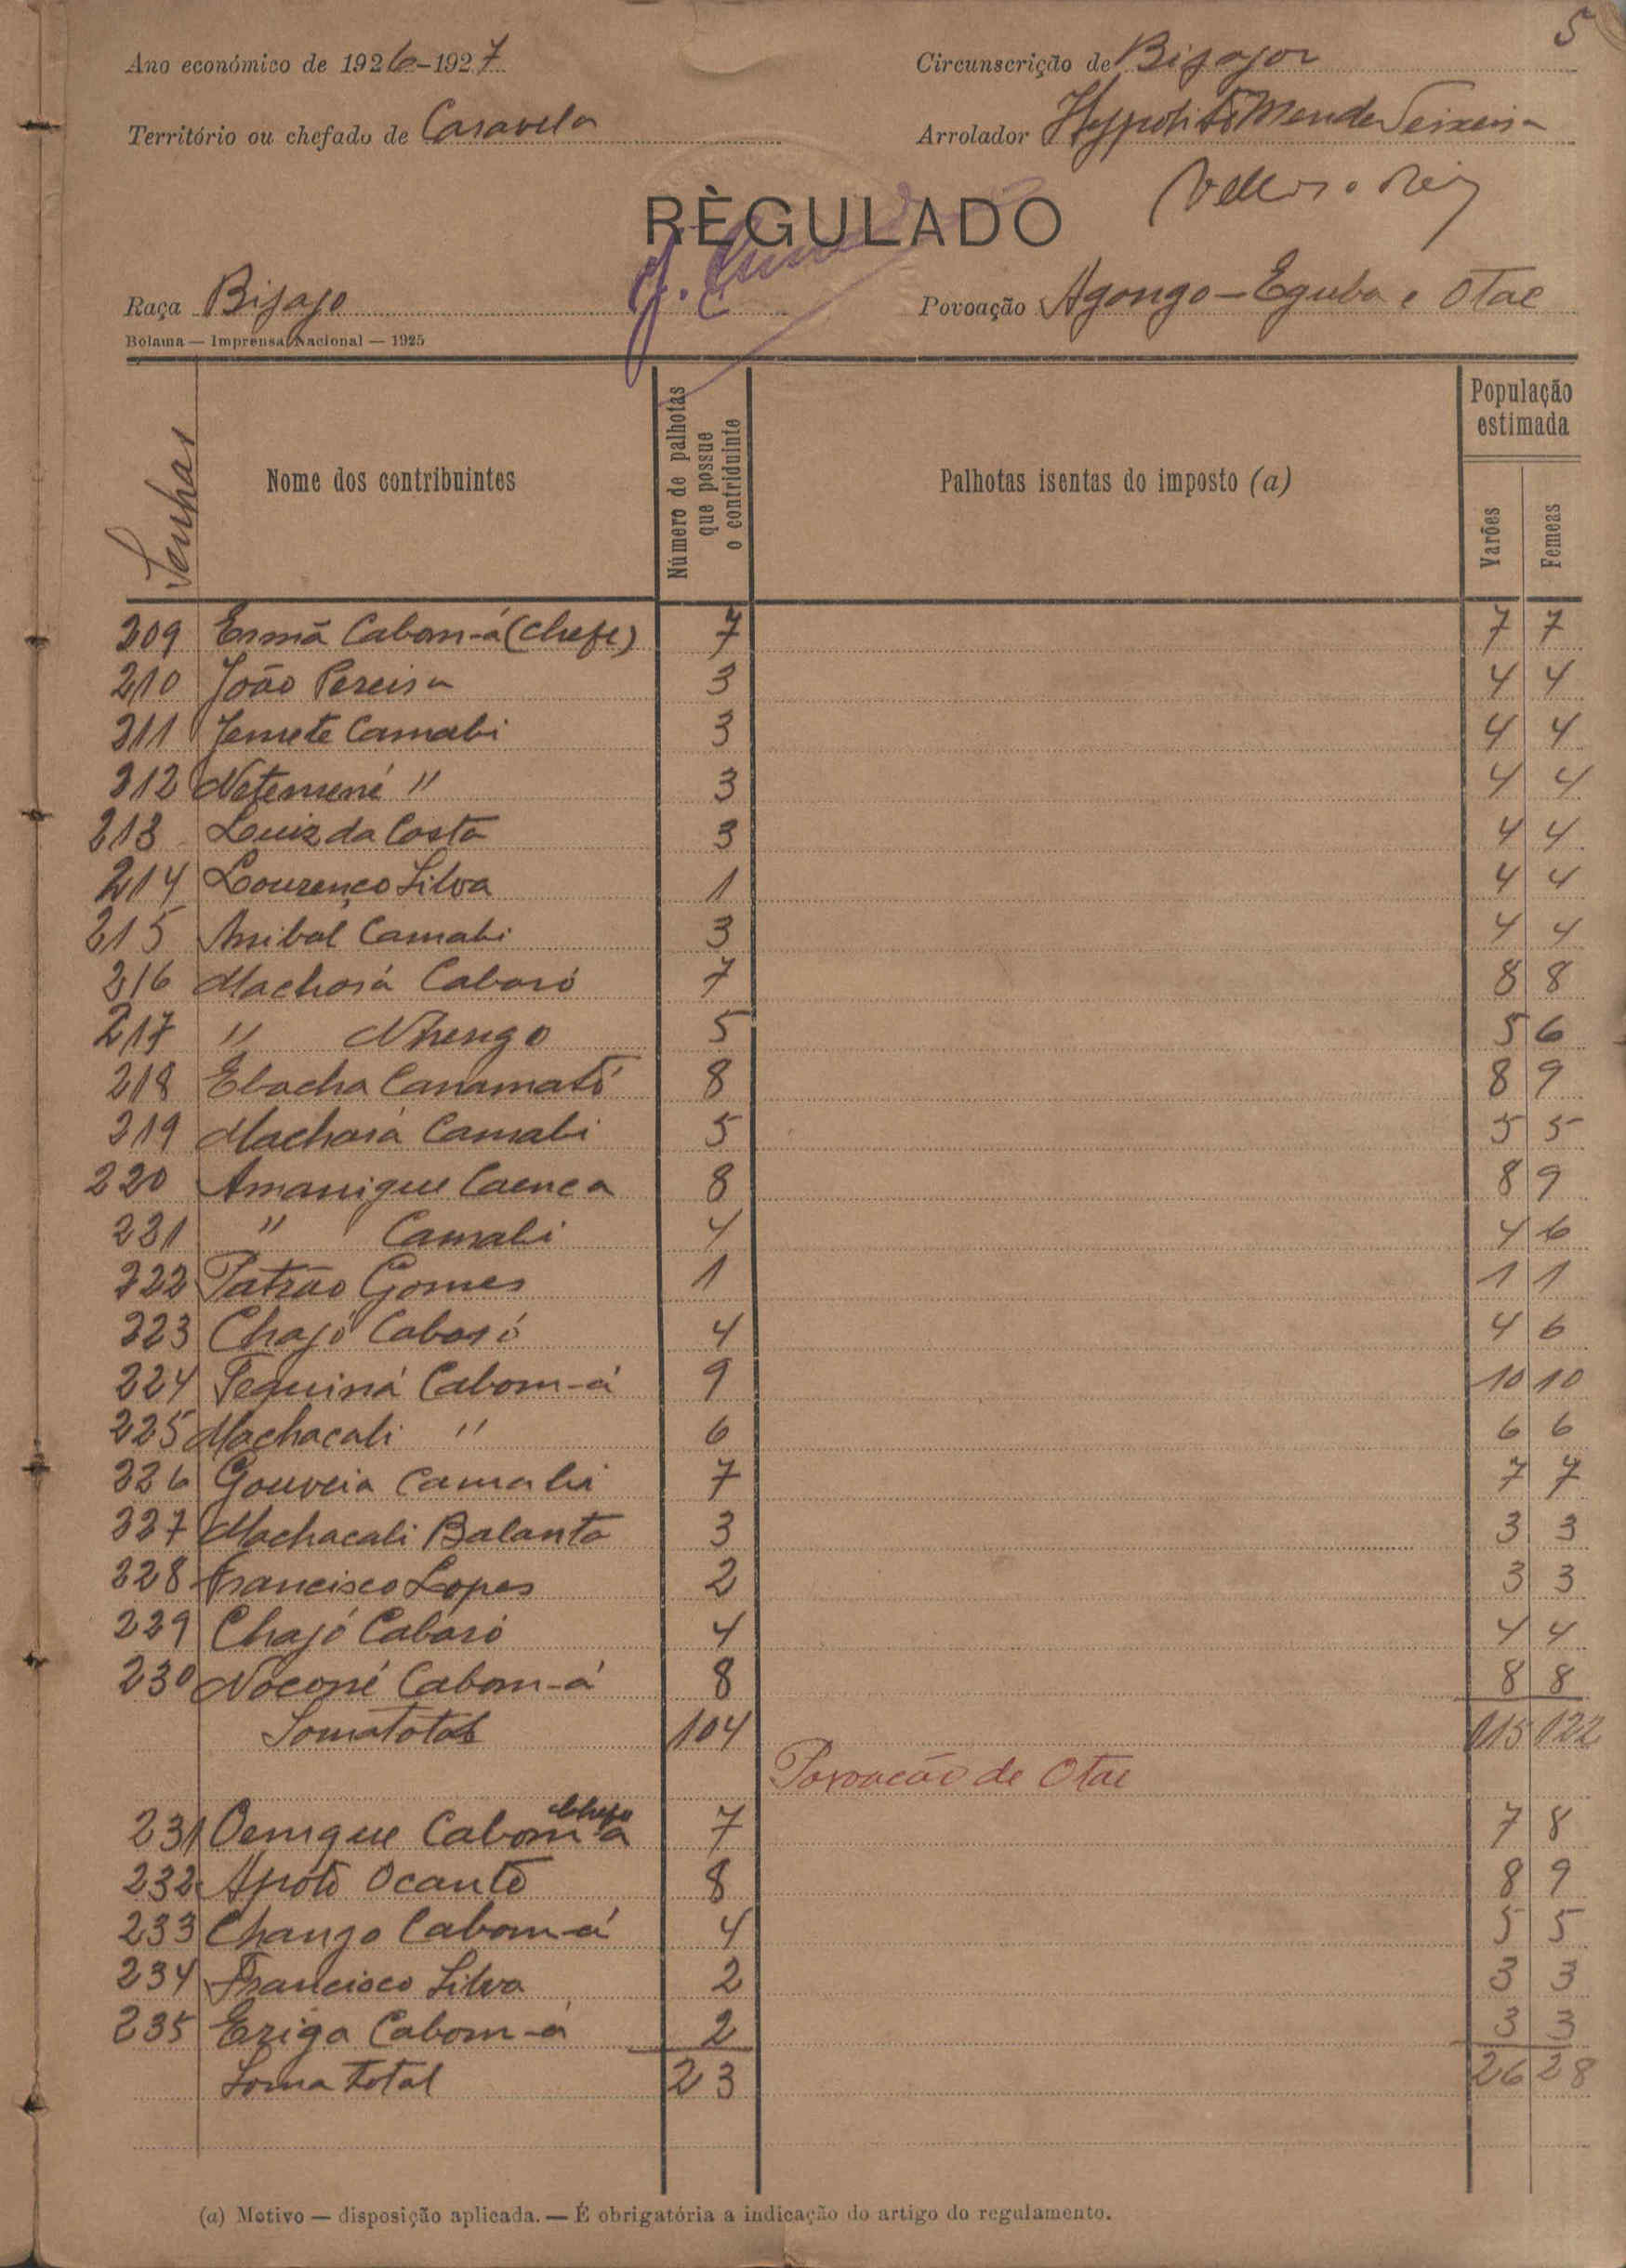 5
Ano económico de 1926-1927
Circunscrição de Bijagoz
Território ou chefado de Caravela
Arrolador Hyppolito Mendes Teixeira
RÈGULADO
Raça Bijago
Povoação Agongo-Eguba e Otae
Bolama — Imprensa Nacional — 1925
Senhas
Nome dos contribuintes
Número de palhotas que possue o contriduinte
Palhotas isentas do imposto (a)
População estimada
Varões
Femeas
209 Ermã Cabom-á (Chefe) 7 7 7
210 João Pereira 3 4 4
211 Jemete Camabi 3 4 4
212 Netemené " 3 4 4
213 Luiz da Costa 3 4 4
214 Lourenço Silva 1 4 4
215 Anibal Camabi 3 4 4
216 Machorá Caboró 7 8 8
217 " Nhengo 5 5 6
218 Ebacha Canamató 8 8 9
219 Machorá Camabi 5 5 5
220 Amanique Caenca 8 8 9
221 " Camabi 4 4 6
222 Patrão Gomes 1 1 1
223 Chajó Caboró 4 4 6
224 Tequiná Cabom-á 9 10 10
225 Machacali " 6 6 6
226 Gouveia Camabi 7 7 7
227 Machacali Balanta 3 3 3
228 Francisco Lopes 2 3 3
229 Chajó Caboró 4 4 4
230 Noconé Cabom-á 8 8 8
Soma total 104 115 122
Povoação de Otae
231 Oenique Cabom-á Chefe 7 7 8
232 Apoto Ocanto 8 8 9
233 Chango Cabom-á 4 5 5
234 Francisco Silva 2 3 3
235 Eriga Cabom-á 2 3 3
Soma total 23 26 28
(a) Motivo — disposição aplicada. — É obrigatória a indicação do artigo do regulamento.